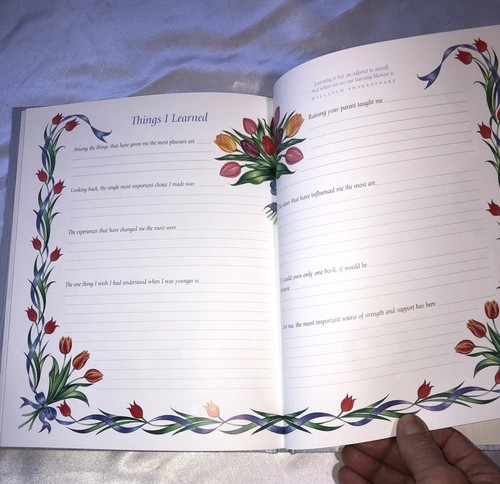 Things I Learned
Among the things that have given me the most pleasure are
Looking back, the single most important choice I made was
The experiences that have changed me the most were
The one thing I wish I had understood when I was younger is
Learning is but an adjunct to myself,
And where we are our learning likewise is
WILLIAM SHAKESPEARE
Raising your parent taught me
ideas that have influenced me the most are
I could own only one book, it would be
For me, the most important source of strength and support has been